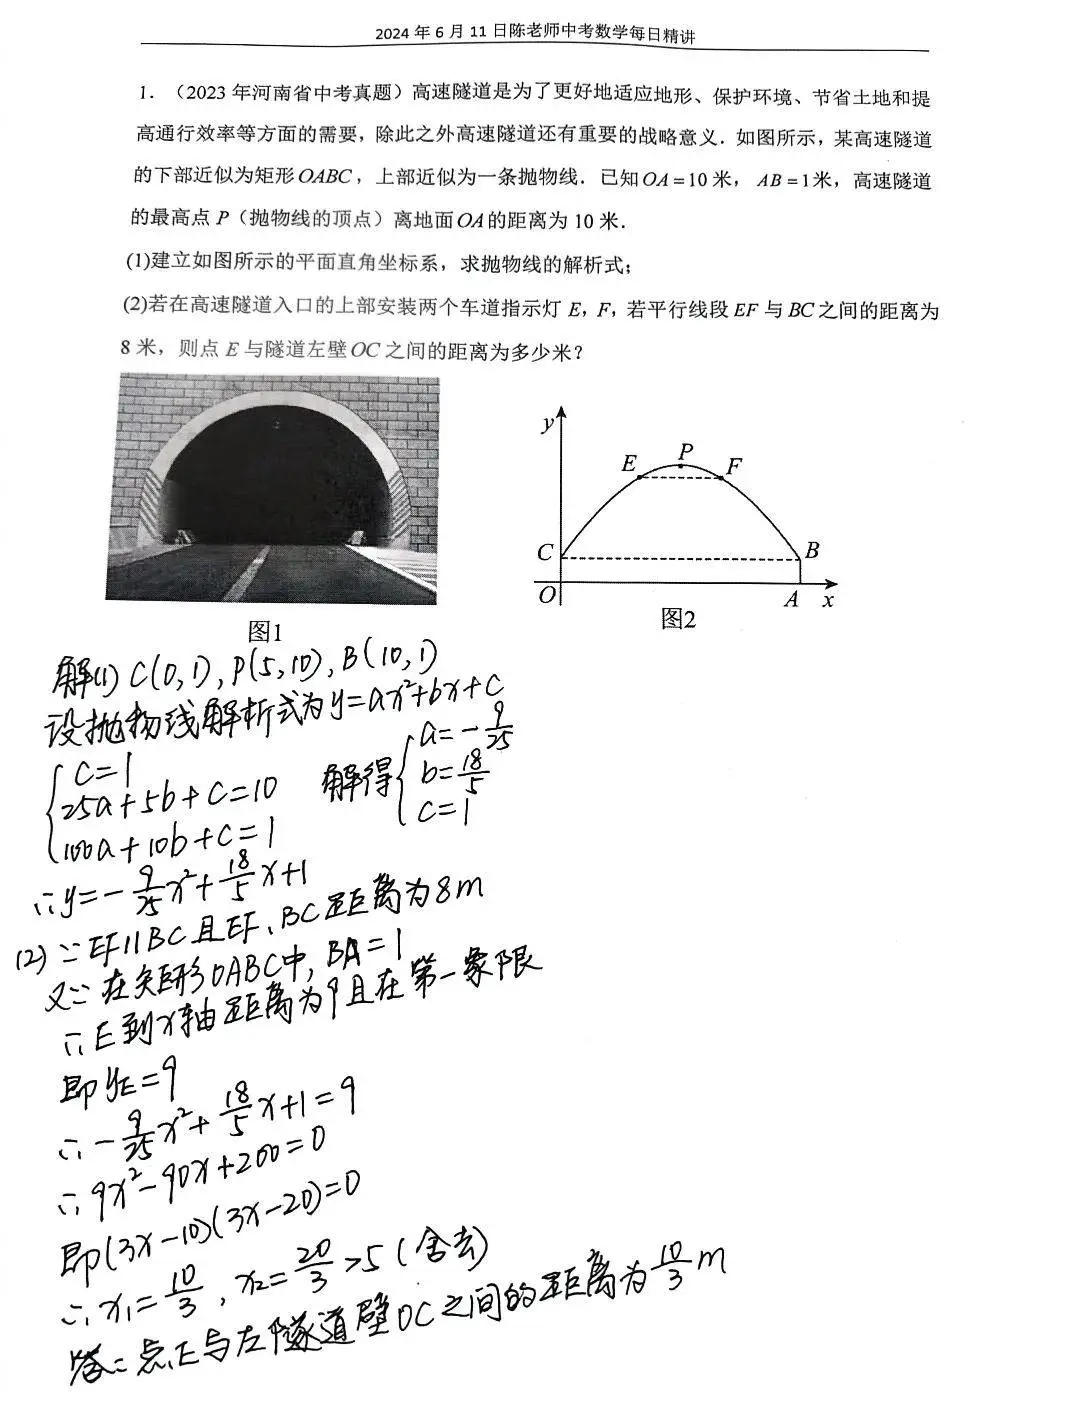 2024年6月11日陈老师中考数学每日精讲
1. （2023年河南省中考真题）高速隧道是为了更好地适应地形、保护环境、节省土地和提
高通行效率等方面的需要，除此之外高速隧道还有重要的战略意义．如图所示，某高速隧道
的下部近似为矩形OABC，上部近似为一条抛物线．已知OA=10米，AB=1米，高速隧道
的最高点P（抛物线的顶点）离地面OA的距离为10米．
(1)建立如图所示的平面直角坐标系，求抛物线的解析式；
(2)若在高速隧道入口的上部安装两个车道指示灯E，F，若平行线段EF与BC之间的距离为
8米，则点E与隧道左壁OC之间的距离为多少米？
y
E P F
C B
O A x
图1 图2
解(1) C(0,1), P(5,10), B(10,1)
设抛物线解析式为y=ax²+bx+c
{ c=1
25a+5b+c=10
100a+10b+c=1
解得 { a=-9/25
b=18/5
c=1
∴y=-9/25x²+18/5x+1
(2) ∵EF∥BC且EF、BC距离为8m
又∵在矩形OABC中, BA=1
∴E到x轴距离为9且在第一象限
即yE=9
∴-9/25x²+18/5x+1=9
∴9x²-90x+200=0
即(3x-10)(3x-20)=0
∴x₁=10/3, x₂=20/3>5(舍去)
答：点E与左隧道壁OC之间的距离为10/3m